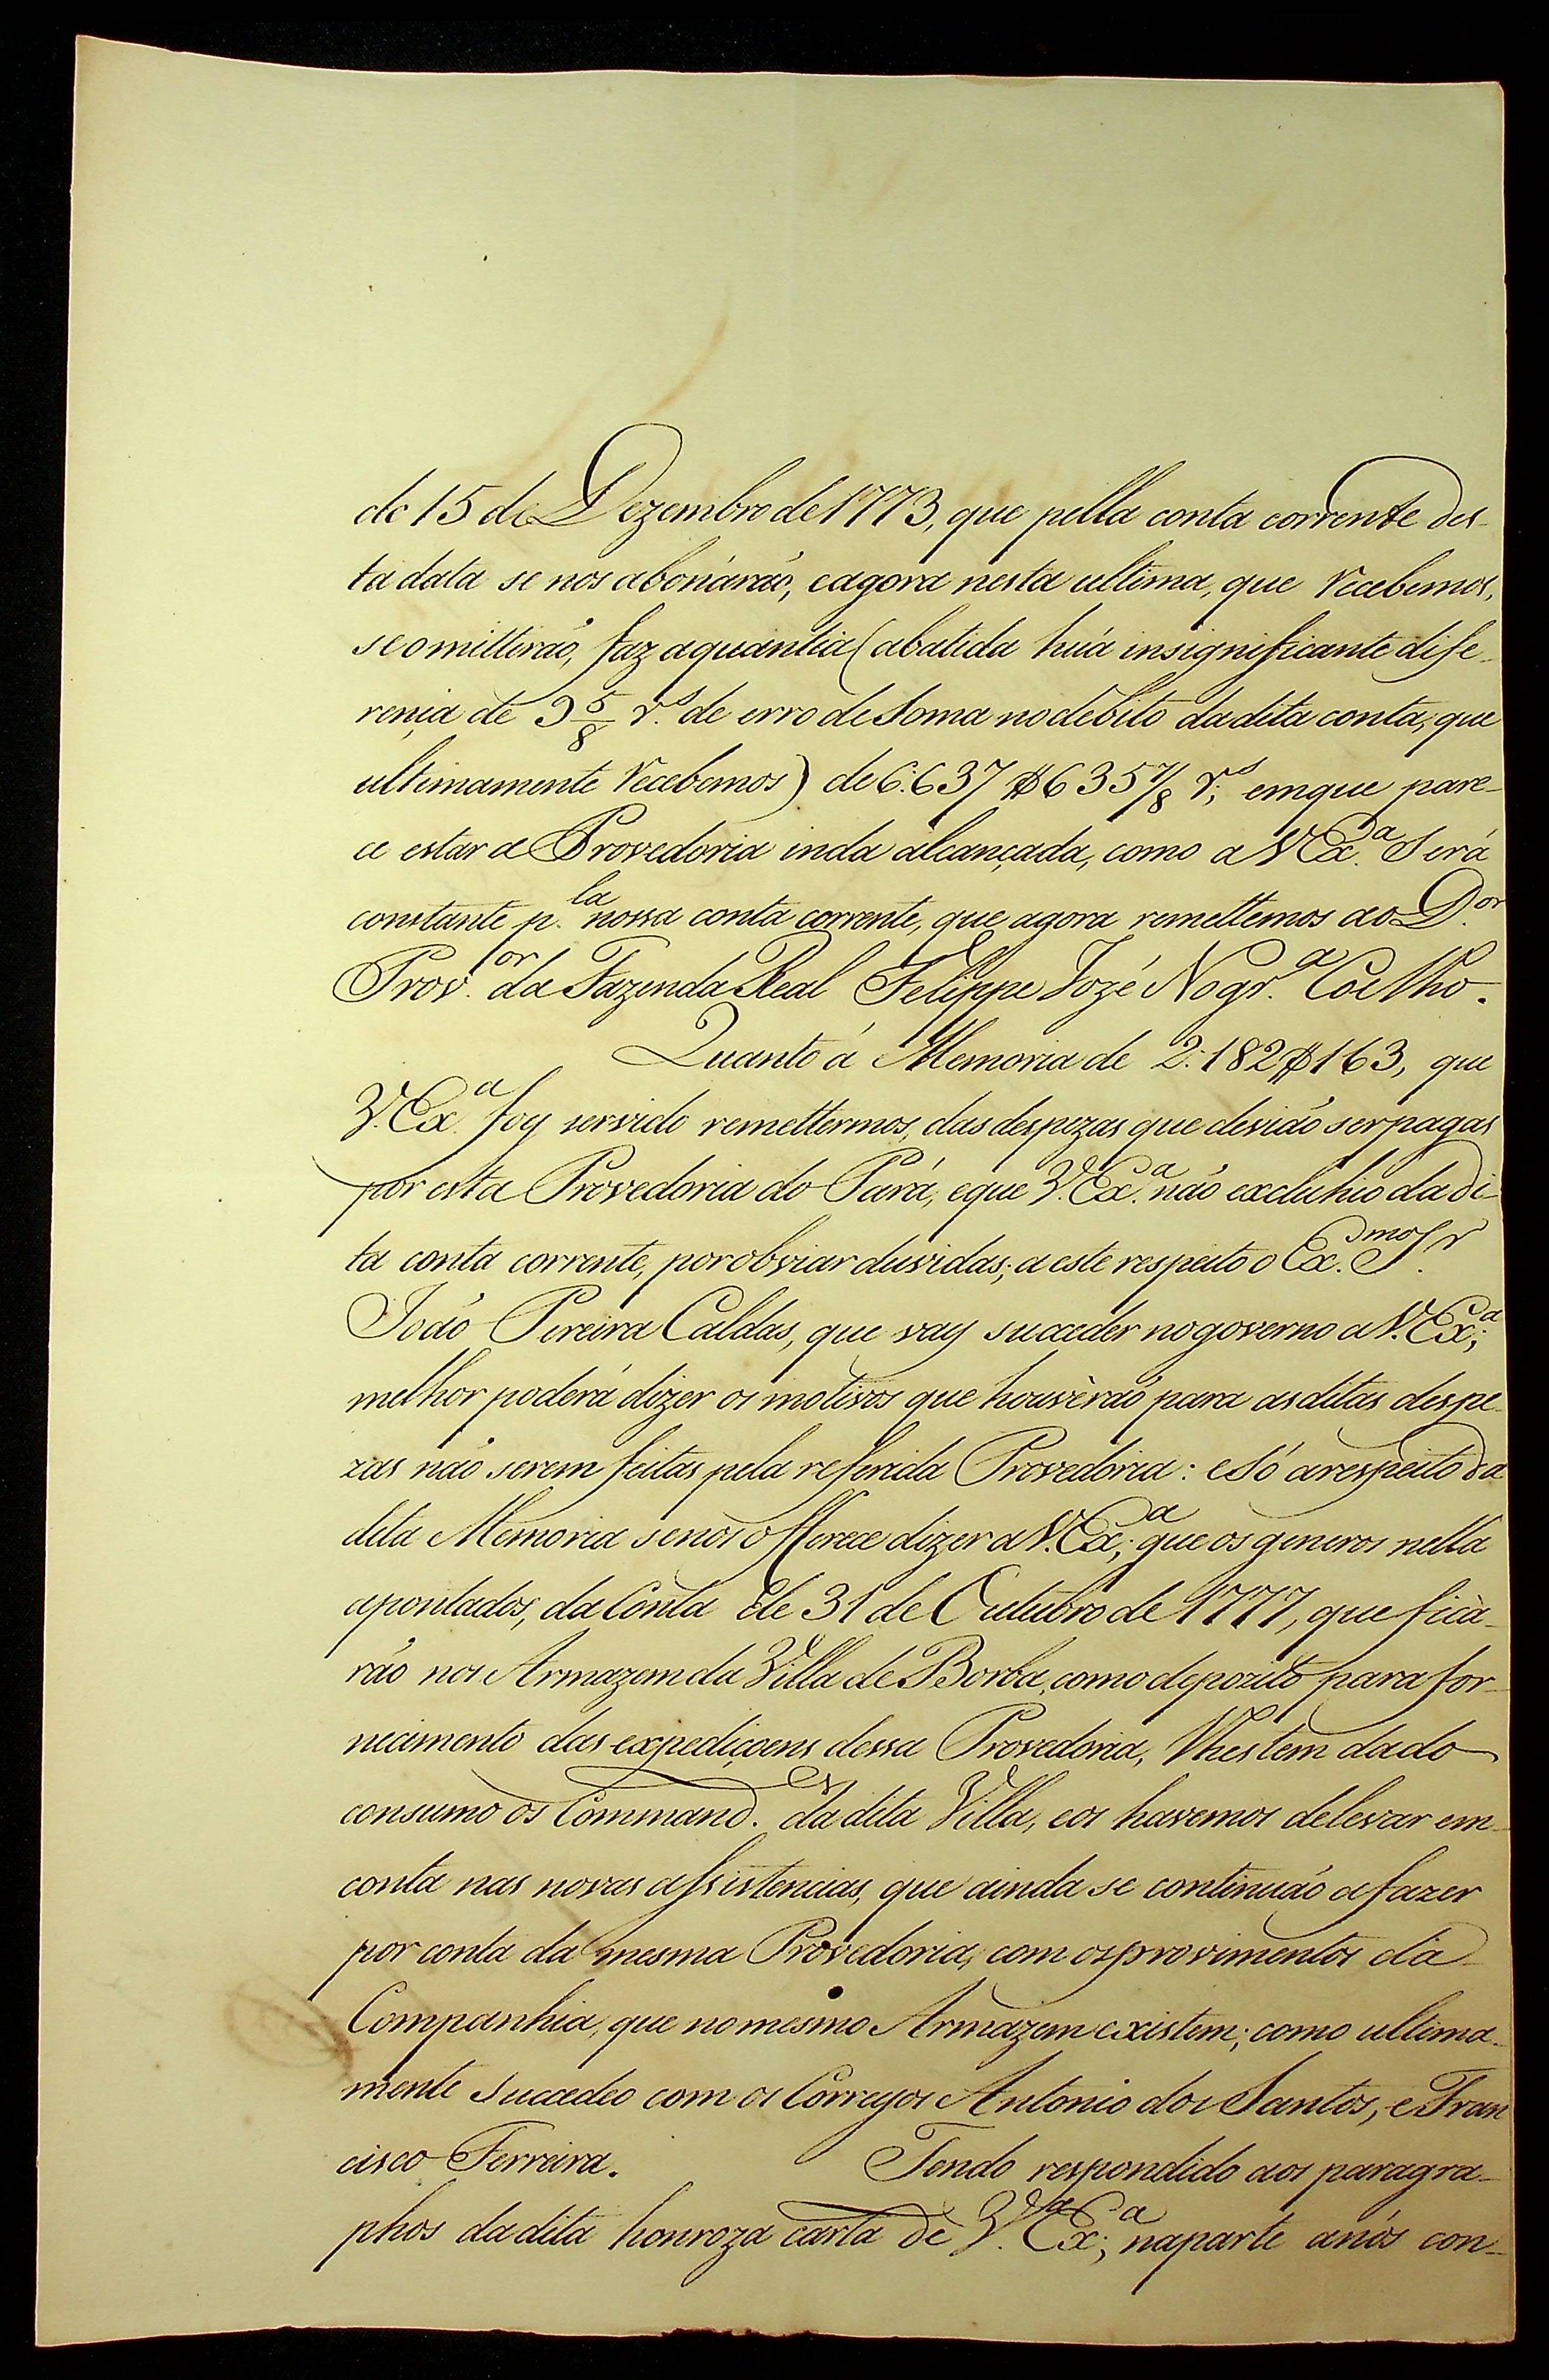 de 15 de Dezembro de 1773, que pella conta corrente des-
ta data se nos abonárão, e agora nesta ultima, que recebemos,
se omittirão, faz a quantia (abatida hũa insignificante dife-
rença de 3 5/8 r.s de erro de Soma no debito da dita conta, que
ultimamente recebemos) de 6:637$635 7/8 r.s, em que pare-
ce estar a Provedoria inda alcançada, como a V.Ex.a Será
constante p.la nossa conta corrente, que agora remettemos ao D.or
Prov.or da Fazenda Real Felippe Jozé Nogr.a Coelho.
Quanto á Memoria de 2:182$163, que
V.Ex.a foy servido remettermos, das despezas que devião ser pagas
por esta Provedoria do Pará, e que V.Ex.a não excluhio da di-
ta conta corrente, por obviar duvidas; a este respeito o Ex.mo S.r
João Pereira Caldas, que vay succeder no governo a V.Ex.a;
melhor poderá dizer os motivos que houvèrão para as ditas despe-
zas não serem feitas pela referida Provedoria: e Só a respeito da
dita Memoria se nos offerece dizer a V.Ex.a; que os generos nella
apontados, da Conta de 31 de Outubro de 1777, que ficà-
rão nos Armazem da Villa de Borba, como depozito para for-
necimento das expediçoens dessa Provedoria, lhes tem dado
consumo os Command.es da dita Villa, e os havemos de levar em
conta nas novas assistencias, que ainda se continuão a fazer
por conta da mesma Provedoria, com os provimentos da
Companhia, que no mesmo Armazem existem; como ultima-
mente Succedeo com os Correyos Antonio dos Santos, e Fran
cisco Ferreira. Tendo respondido aos paragra-
phos da dita honroza carta de V.a Ex.a; na parte a nós con-